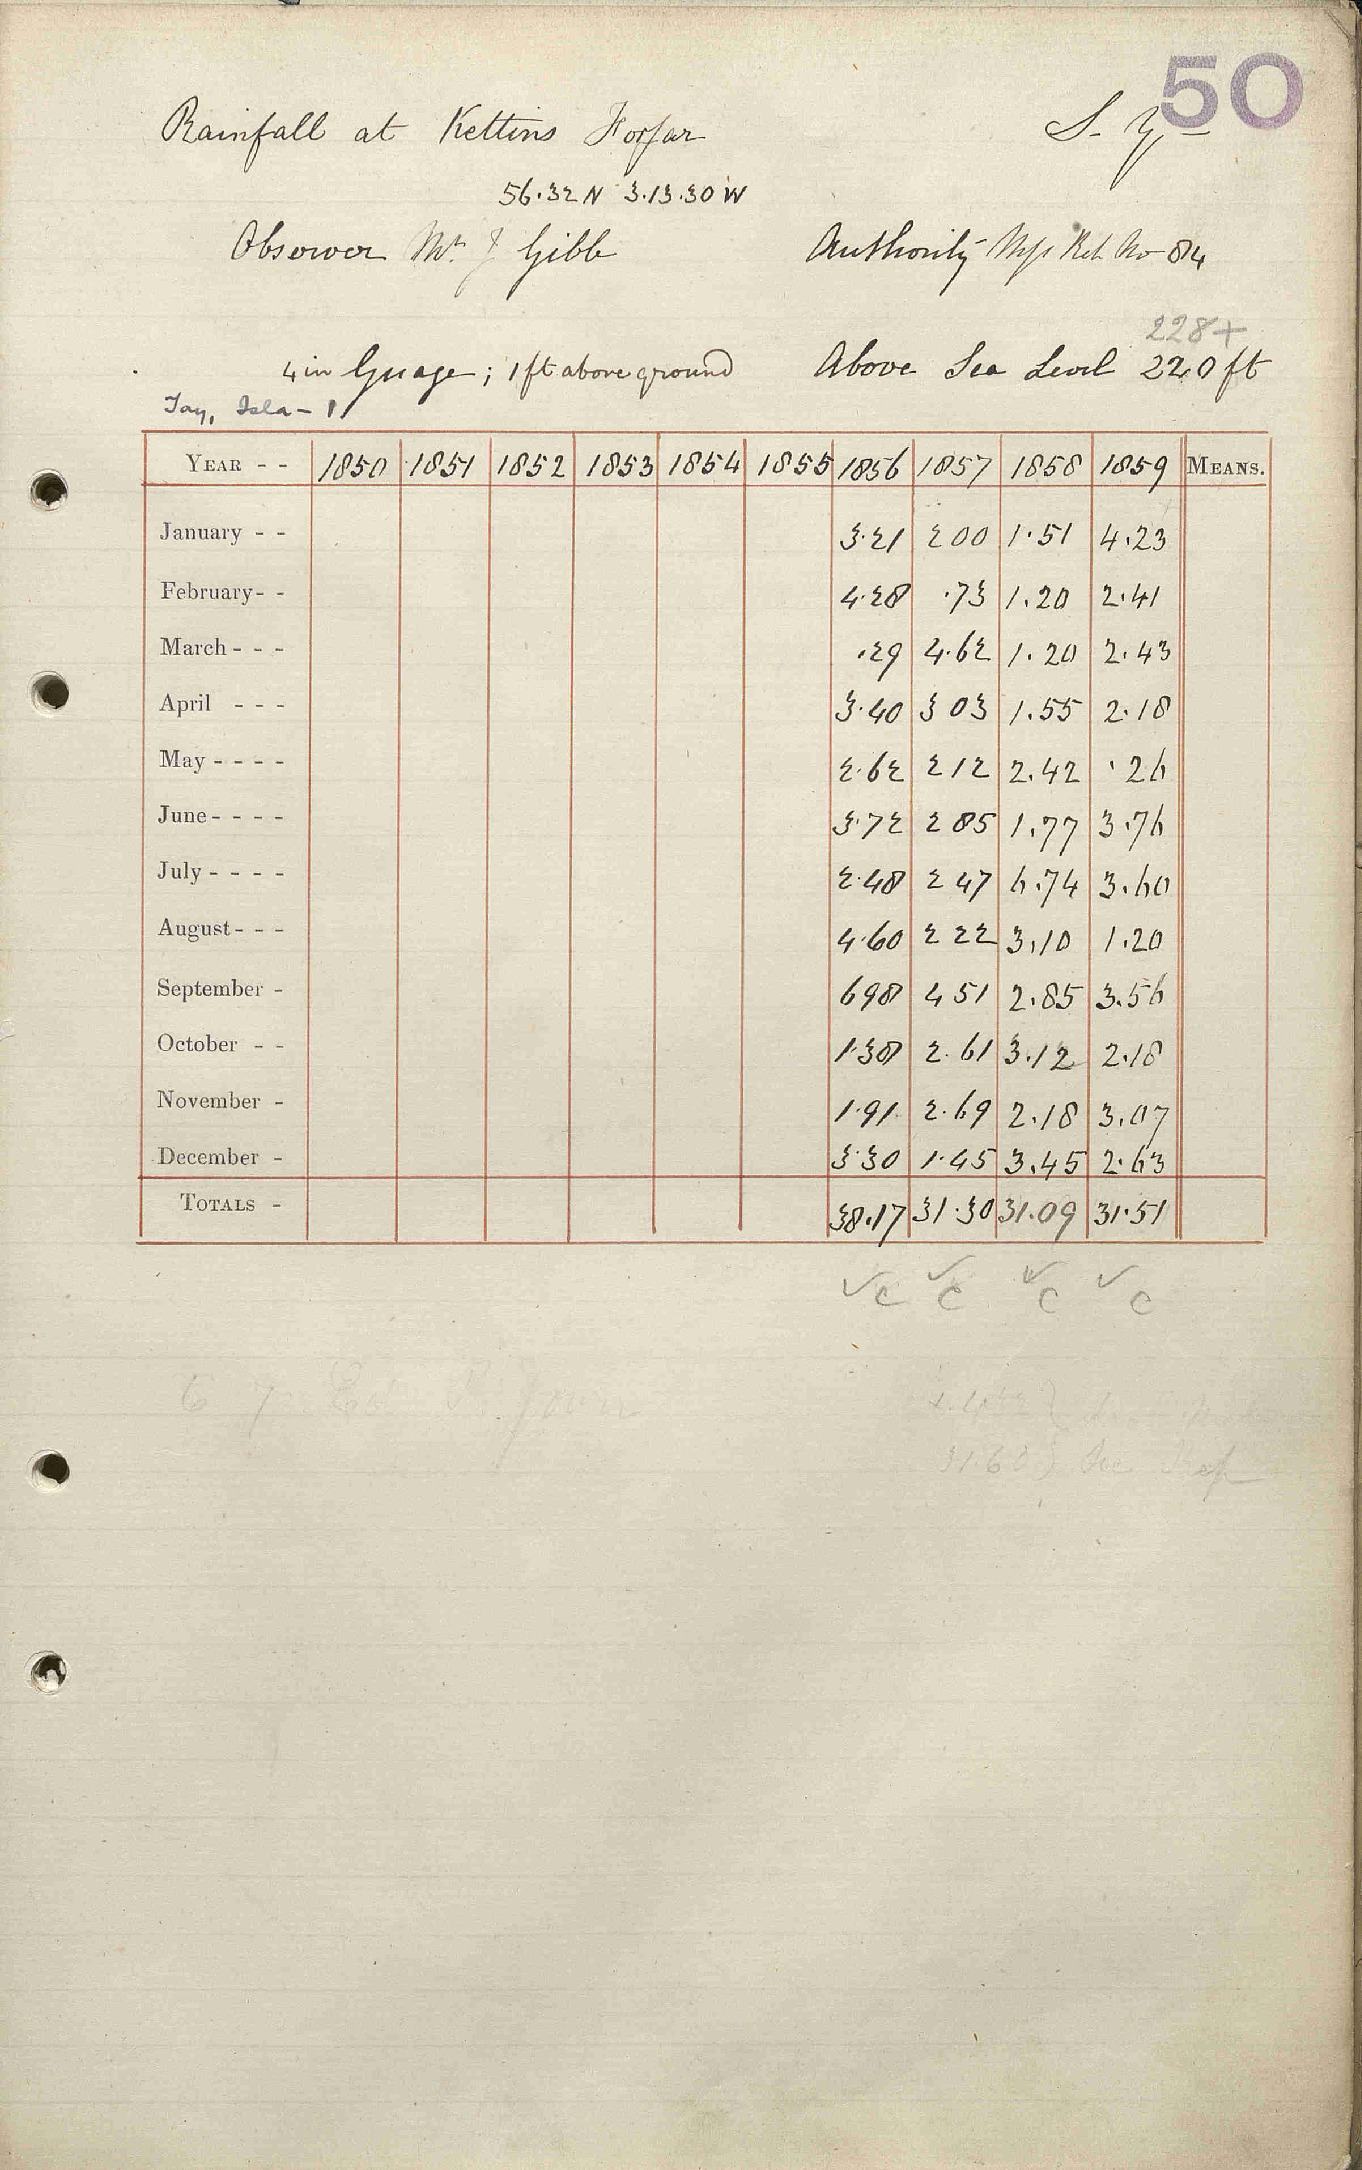 50
Rainfall at Kettins Forfar S.
56.32 N 3.13.30 W
Observer Mr. J Gibb Authority No 84
228+
4 in Guage; 1 ft above ground Above Sea Level 220 ft
Tay, Isla - 1
YEAR - - 1850 1851 1852 1853 1854 1855 1856 1857 1858 1859 MEANS.
January - - 3.21 2 00 1.51 4.23
February - - 4.28 .73 1.20 2.41
March - - - .29 4.62 1.20 2.43
April - - - 3.40 3 03 1.55 2.18
May - - - - 2.62 2 12 2.42 .26
June - - - - 3.72 2 85 1.77 3.76
July - - - - 2.48 2 47 6.74 3.60
August - - - 4.60 2 22 3.10 1.20
September - 6 98 4 51 2.85 3.56
October - - 1.38 2.61 3.12 2.18
November - 1.91 2.69 2.18 3.07
December - 3.30 1.45 3.45 2.63
TOTALS - 38.17 31.30 31.09 31.51
✓c ✓c ✓c ✓c